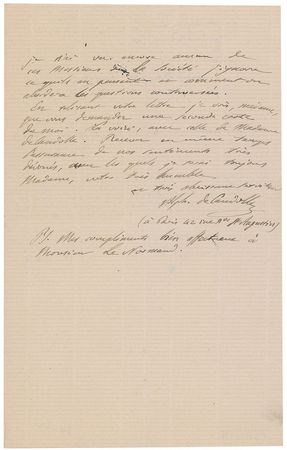 je n'ai vu encore aucun de
ces Messieurs de la Société j'ignore
ce qu'ils en pensent et comment on
abordera les questions controversées.
En relisant votre lettre je vois, madame,
que vous demandez une seconde carte
de moi. La voici, avec celle de Madame
de Candolle. Recevez en même temps
l'assurance de nos sentiments très
dévoués, avec lesquels je serai toujours
Madame, votre très humble
et très obéissant serviteur
Alph. de Candolle
(à Paris 42 rue Nve St Augustin)
PS. Mes compliments bien affectueux à
Monsieur Le Normand.